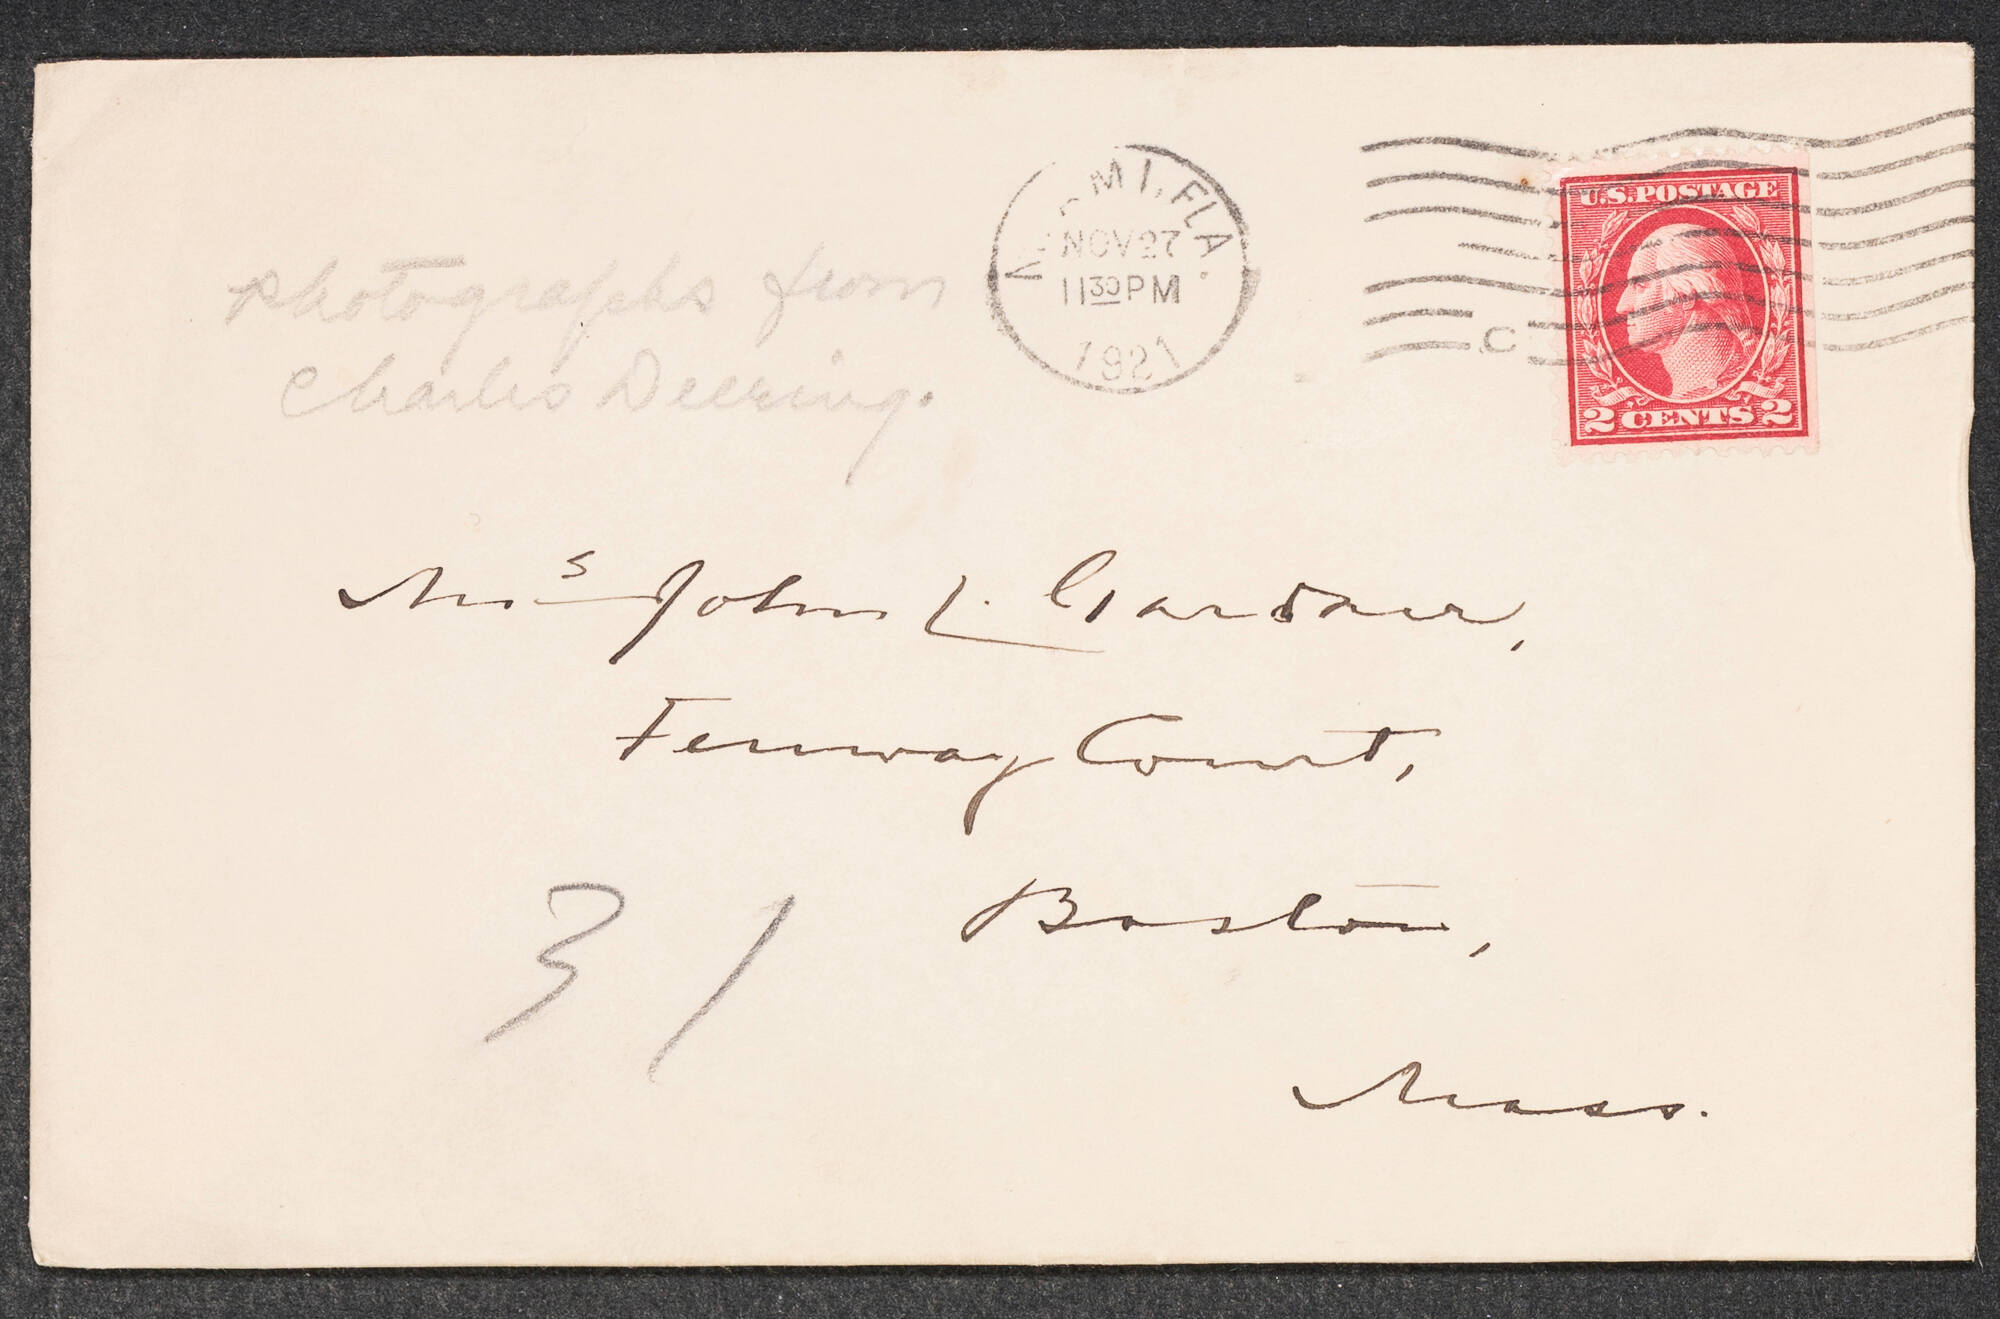 MIAMI, FLA.
NOV 27
11 30 PM
1921
C
U.S. POSTAGE
2 CENTS 2
Photographs from
Charles Deering.
Mrs John L. Gardner,
Fenway Court,
Boston,
Mass.
31